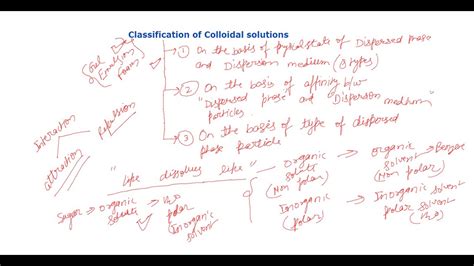 Classification of Colloidal solutions
1 On the basis of physical state of Dispersed phase
and Dispersion medium (8 types)
(Gel
Emulsion
Foam)
2 On the basis of affinity b/w
"Dispersed phase" and "Dispersion medium"
particles
3 On the basis of type of dispersed
phase particle
Interaction
attraction
Repulsion
"like dissolves like"
Organic solute (Non polar) → Organic solvent (Non polar) → Benzene
Inorganic (polar) → Inorganic solvent
polar solvent (H2O)
Sugar → Organic solute → H2O
polar
Inorganic
solvent